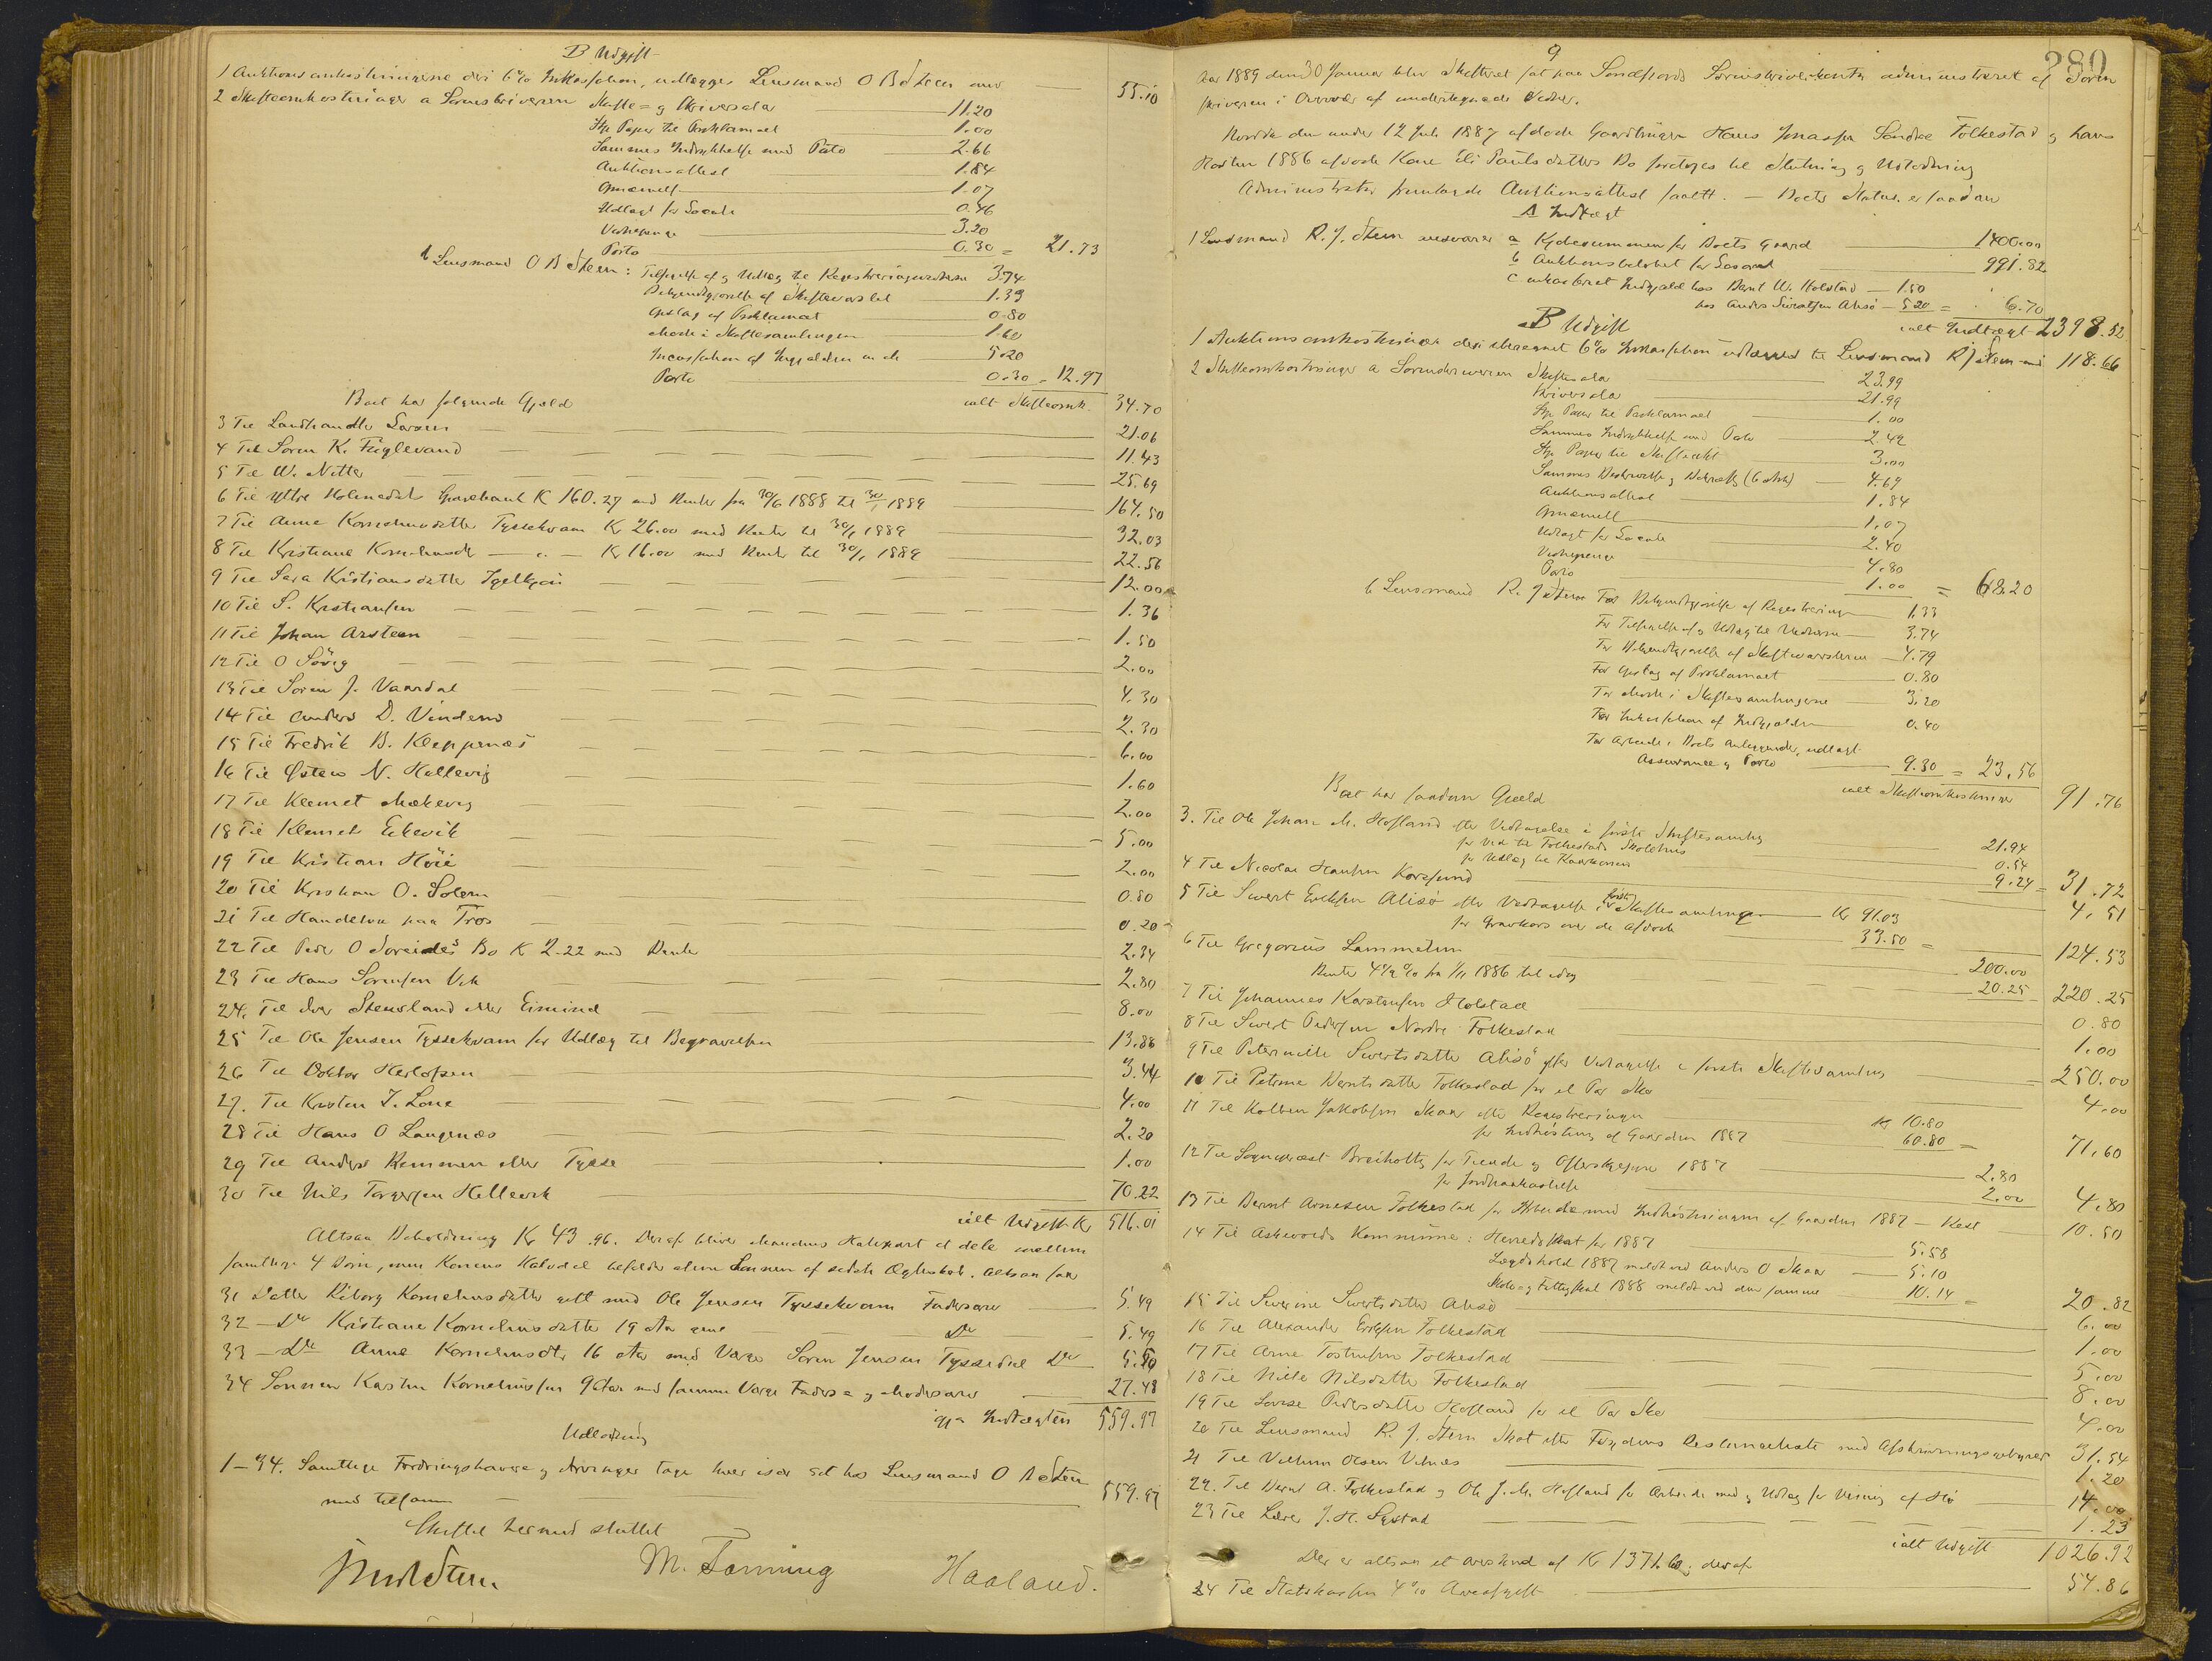 B Udgift
1 Auktionsomkostningerne deri 6% Inkassation, udlægges Lensmand O B Steen med 55.10
2 Skifteomkostninger a Sorenskriveren Skifte= og Skriversalær 11.20
Stp Papir til Proklamaet 1.00
Sammes Indrykkelse med Porto 2.66
Auktionsattest 1.84
Gjenemell 1.07
Udlagt for Locale 0.46
Vidnepenge 3.20
Porto 0.30 = 21.73
b Lensmand O B Steen: Tilsigelse af og Udlæg til Registreringsvidnerne 3.74
Bekjendtgjørelse af Skiftevarslet 1.33
Opslag af Proklamaet 0.80
Møde i Skiftesamlingen 1.60
Incassation af Indgjælden m. m. 5.20
Porto 0.30 = 12.97
Boet har følgende Gjæld ialt Skifteomk. 34.70
3 Til Landhandler Larsen 21.06
4 Til Søren K. Fuglevand 11.43
5 Til W. Nitter 25.69
6 Til Yttre Holmedals Sparebank K 160.27 med Renter fra 30/6 1888 til 30/1 1889 164.50
7 Til Anne Kornelius datter Tyssekvam Kr 26.00 med Renter til 30/1 1889 32.03
8 Til Kristiane Korneliusdr — " — Kr 16.00 med Renter til 30/1 1889 22.56
9 Til Sara Kristians datter 12.00
10 Til S. Kristiansen 1.36
11 Til Johan Arsteen 1.50
12 Til O Sövig 2.00
13 Til Søren J. Vaardal 4.30
14 Til Anders D. Vindenes 2.30
15 Til Fredrik B. Kleppenæs 6.00
16 Til Østen N. Hellevig 1.60
17 Til Klemet Mækevig 2.00
18 Til Klemet Eikevik 5.00
19 Til Kristian Höie 2.00
20 Til Kristian O. Solem 0.80
21 Til Handelen paa Tros 0.20
22 Til Peder O Soreides Bo K 2.22 med Rente 2.34
23 Til Hans Sørensen Vik 2.80
24. Til Iver Stensland eller Eimind 8.00
25 Til Ole Jensen Tyssekvam for Udlæg til Begravelsen 13.88
26 Til Doktor Herlofsen 3.44
27. Til Kristen J. Lone 4.00
28 Til Hans O Langenæs 2.20
29 Til Anders Remmen eller Tysse 1.00
30 Til Nils Torgersen Hellevik 70.22
ialt Udgift Kr 516.01
Altsaa Beholdning Kr 43.96. Deraf bliver Mandens Halvpart at dele mellem
samtlige 4 Børn, men Konens Halvdel tilfalder alene Sønnen af sidste Ægteskab. Altsaa faar
31 Datter Kiborg Kornelius datter gift med Ole Jensen Tyssekvam Fadersarv 5.49
32 — Dr Kristiane Kornelius datter 19 Aar gml Do 5.49
33 — Dr Anne Korneliusdtr 16 Aar med Værge Søren Jensen Tyssedal Do 5.50
34 Sønnen Karsten Korneliussen 9 Aar med samme Værge Faders= og Modersarv 27.48
opgaar Indtægten 559.97
Udlodning
1—34. Samtlige Fordringshavere og Arvinger tage hver især sit hos Lensmand O B Steen
med tilsammen 559.97
Skiftet hermed sluttet
M. Forming Haaland.
9
280
Aar 1889 den 30 Januar blev Skifteret sat paa Søndfjords Sorenskriverkontor administreret af Soren
skriveren i Overvær af undertegnede Vidner.
Hvorda den under 12 Juli 1887 afdøde Gaardbruger Hans Jonassen Søndre Folkestad og hans
Høsten 1886 afdøde Kone Eli Pauls datters Bo foretages til Slutning og Udlodning
Administrator fremlagde Auktionsattest saalt. — Boets Status er saadan
A Indtægt
1 Lensmand R. J. Steen indsvarer a Kjøbesummen for Boets Gaard 1400.00
b Auktionsbeløbet for Løsøret 991.82
c inkasseret Indgjæld hos Bernt W. Holstad — 1.50
hos Anders Sivertsen Alisö — 5.20 = 6.70
ialt Indtægt 2398.52
B Udgift
1 Auktionsomkostninger deri iberegnet 6% Inkassation udlægges til Lensmand R J Steen med 118.66
2 Skifteomkostninger a Sorenskriveren Skiftesalær 23.99
Skriversalær 21.99
Stp Papir til Proklamaet 1.00
Sammes Indrykkelse med Porto 2.42
Stp Papir til Skifteakt 3.00
Sammes Beskrivelse og Udskrift (6 Ark) 4.69
Auktionsattest 1.84
Gjenemell 1.07
Udlagt for Locale 2.40
Vidnepenge 4.80
Porto 1.00 = 68.20
b Lensmand R. J Steen For Bekjendtgjørelse af Registrering 1.33
For Tilsigelse af og Udlæg til Vidnerne 3.74
For Bekjendtgjørelse af Skiftevarslerne 4.79
For Opslag af Proklamaet 0.80
For Møde i Skiftesamlingerne 3.20
For Inkassation af Indgjælden 0.40
For Arbeide i Boets Anliggender, udlagt
Assurance og Porto 9.30 = 23.56
ialt Skifteomkostninger 91.76
Boet har saadan Gjæld
3. Til Ole Johan M. Hofland efter Vedtagelse i første Skiftesamling 21.94
for Ved til Folkestads Skolehus 0.54
for Udlæg til 9.24 = 31.72
4 Til Nicolai Hansen Korssund 4.51
5 Til Sivert Eriksen Alisö efter Vedtagelse i første Skiftesamlingen Kr 91.03
for Gravkors over de afdøde 33.50 = 124.53
6 Til Gregorius Lammetun 200.00
Renter 4½ % fra 1/11 1886 til idag 20.25 220.25
7 Til Johannes Karstensen Holstad 0.80
8 Til Sivert Pedersen Nordre Folkestad 1.00
9 Til Peternille Siverts datter Alisö efter Vedtagelse i første Skiftesamling = 250.00
10 Til Petrine Bernts datter Folkestad for et Par Sko 4.00
11 Til Kolben Jakobsen Skaar efter Registreringen Kr 10.80
for Indhöstning af Gaarden 1887 60.80 = 71.60
12 Til Sogneprest Breiholtz for Tiende og Offerskyssene 1887 2.80
for Jordpaakastelse 2.00 4.80
13 Til Bernt Arnesen Folkestad for Arbeide med Indhöstningen af Gaarden 1887 — Rest 10.50
14 Til Askevolds Kommune: Herredsskat for 1887 5.58
Lægdshold 1887 meldt ved Anders O Skaar 5.10
Skole= og Fattigskat 1888 meldt ved den samme 10.14 = 20.82
15 Til Severine Siverts datter Alisö 6.00
16 Til Alexander Eriksen Folkestad 1.00
17 Til Arne Tostensen Folkestad 5.00
18 Til Nille Nilsdatter Folkestad 8.00
19 Til Lovise Peders datter Hofland for et Par Sko 4.00
20 Til Lensmand R. J. Steen Skat efter Fogdens Restanceliste med Afskrivningsgebyrer 31.54
21 Til Vilhelm Olsen Vilnæs 1.20
22. Til Bernt A. Folkestad og Ole J. M. Hofland for Arbeide med og Udlæg for Visning af Hö 14.00
23 Til Lærer J. H. Systad 1.23
ialt Udgift 1026.92
Der er altsaa et Overskud af Kr 1371.60; deraf
24 Til Statskassen 4% Arveafgift 54.86